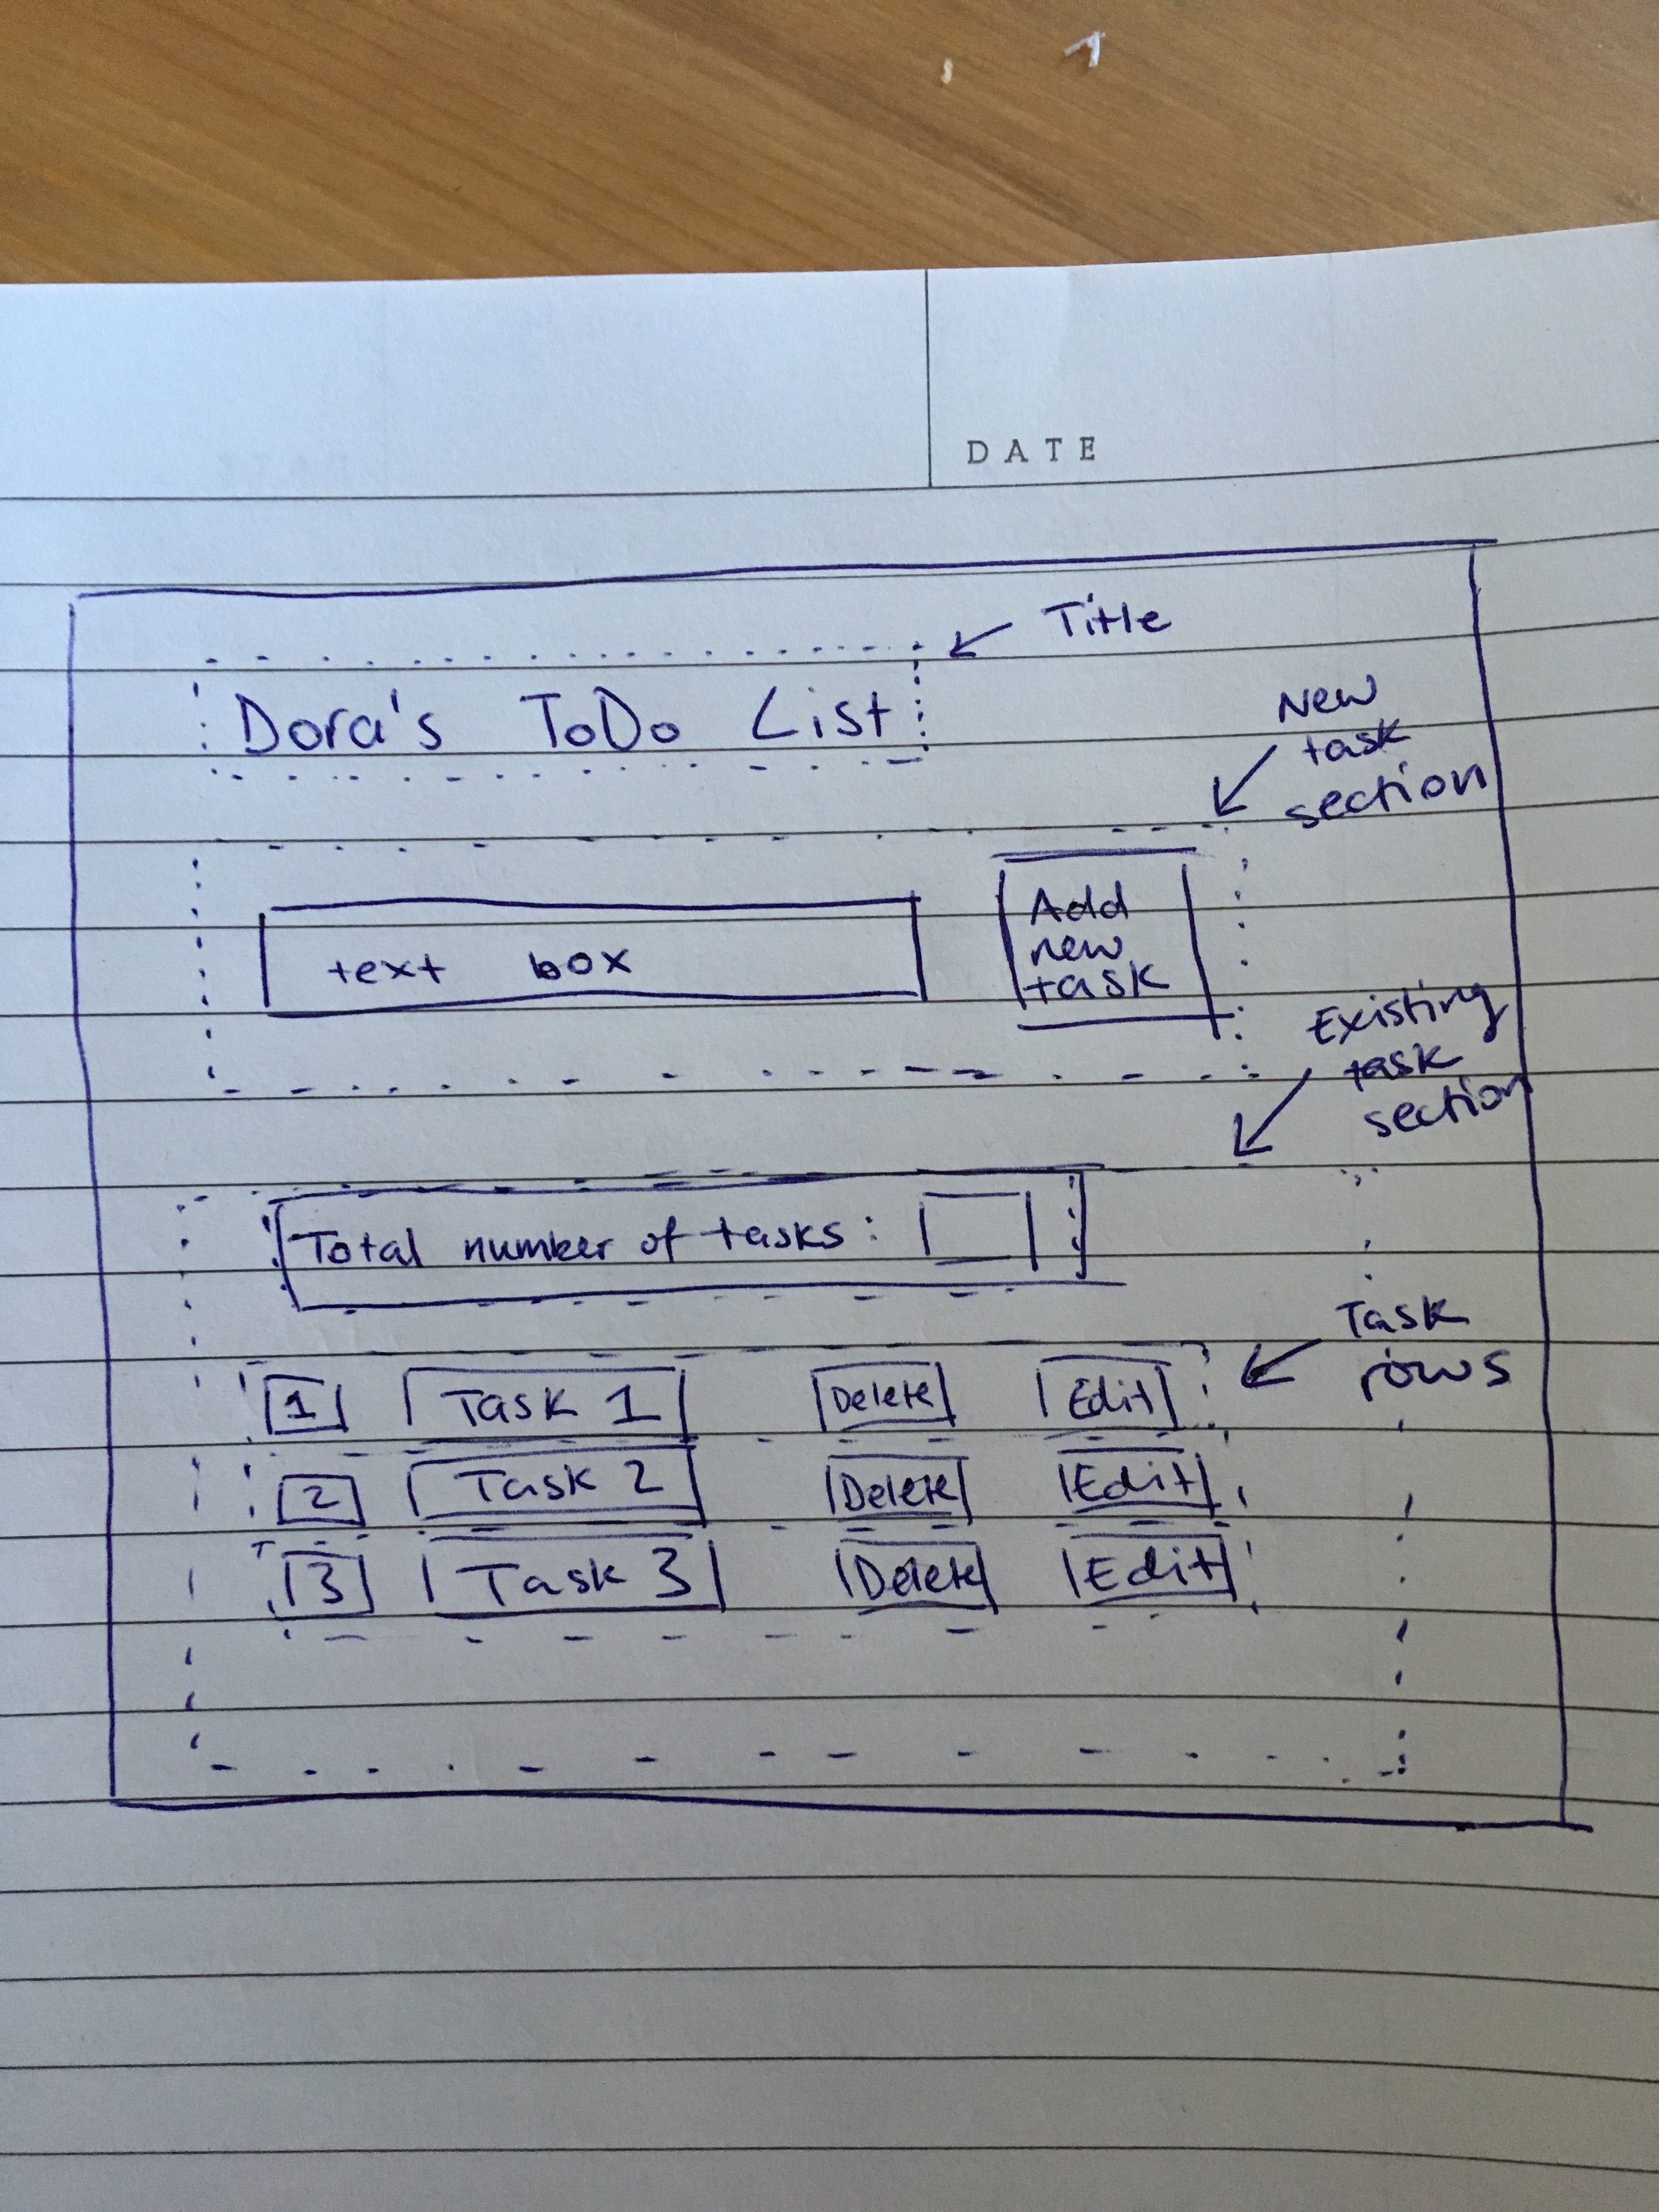 DATE
Title
Dora's ToDo List
New
task
section
text box
Add
new
task
Existing
task
section
Total number of tasks:
Task
rows
1 Task 1 Delete Edit
2 Task 2 Delete Edit
3 Task 3 Delete Edit